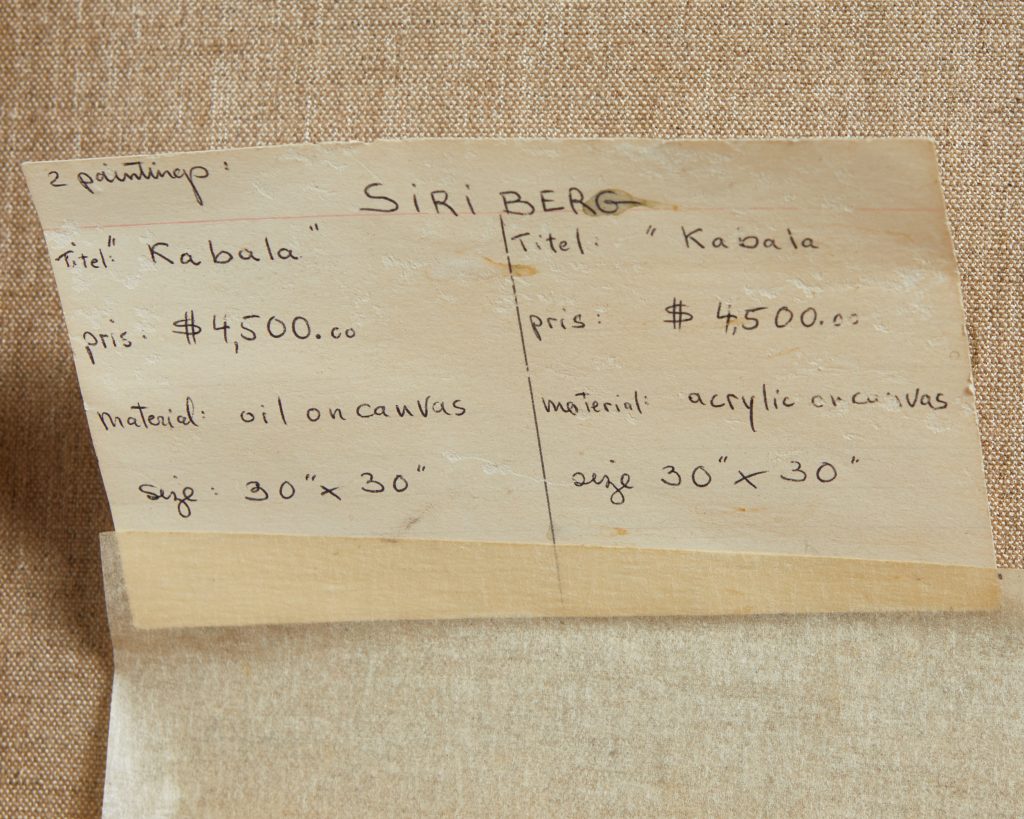 2 paintings:
SIRI BERG
Titel: " Kabala "
pris: $ 4,500.00
material: oil on canvas
size: 30" x 30"
Titel: " Kabala
pris: $ 4,500.00
material: acrylic on canvas
size 30" x 30"